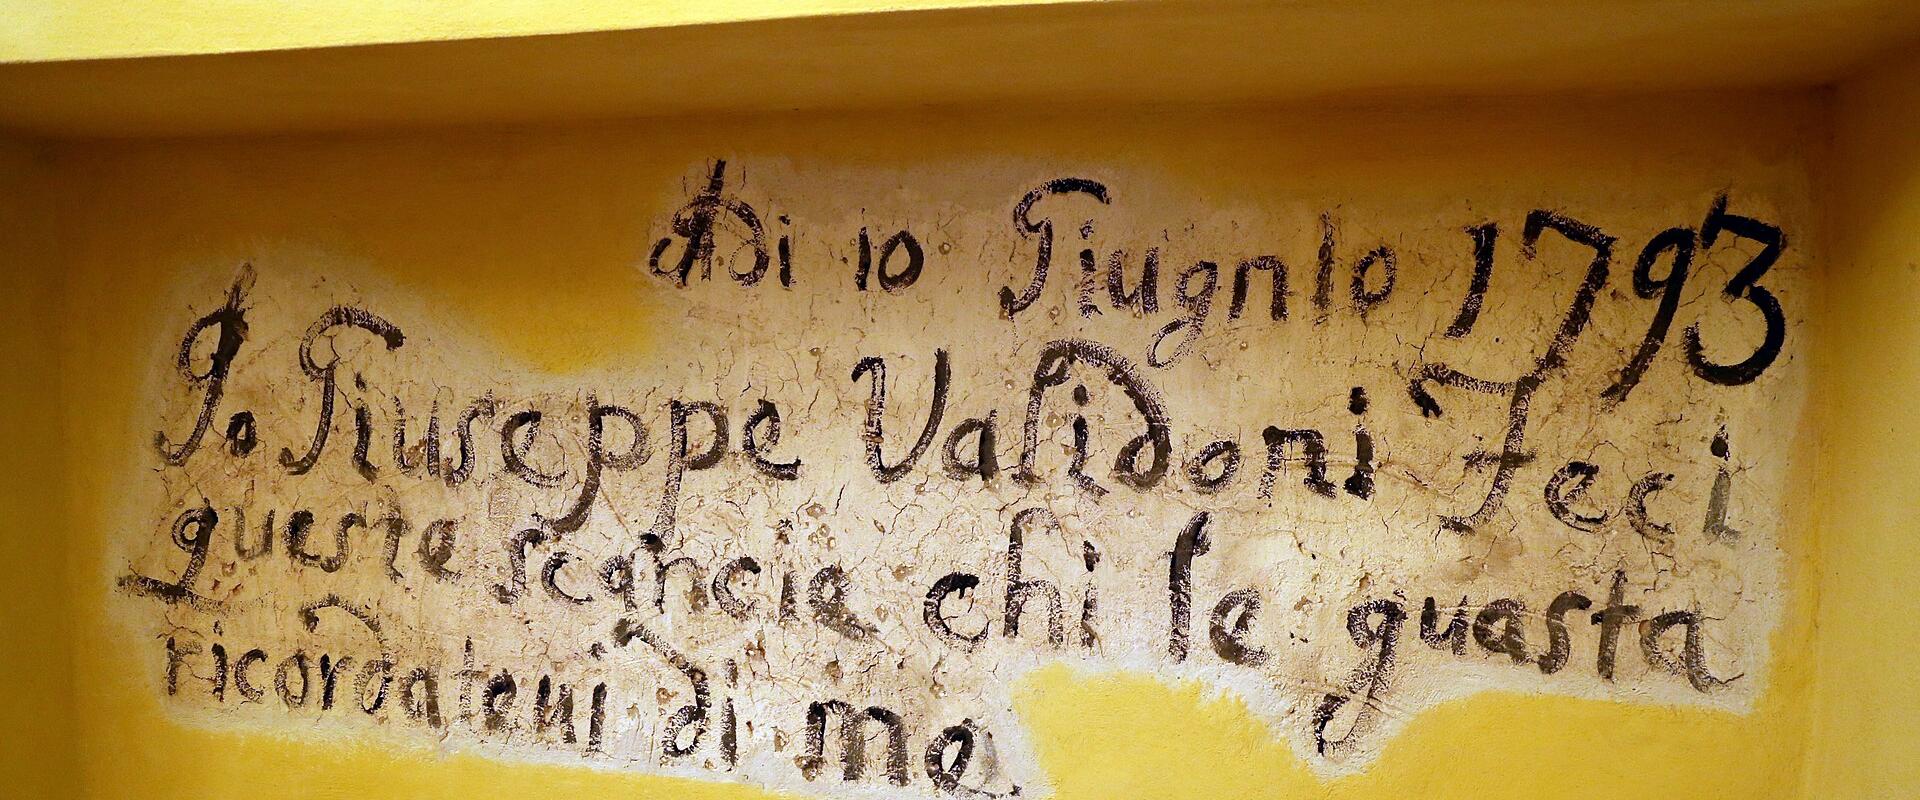 Adi 10 Giugnio 1793
Io Giuseppe Validoni Feci
queste scancie chi le guasta
ricordateui di me